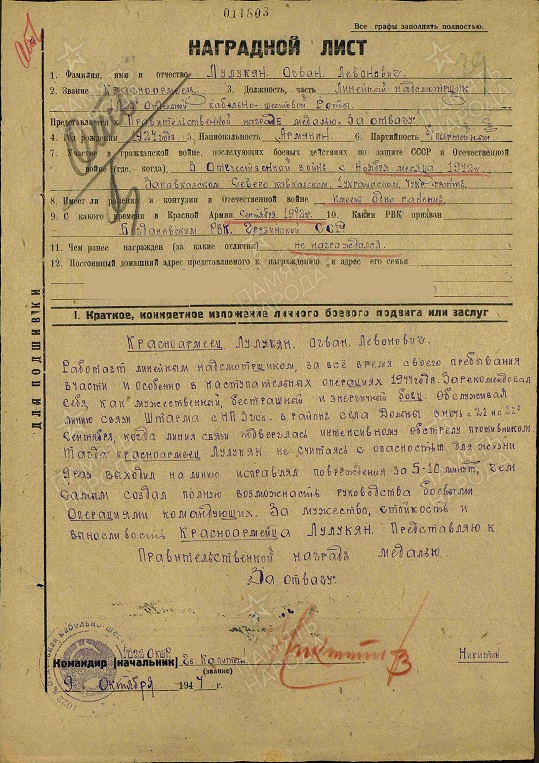 011803
Все графы заполнять полностью.
НАГРАДНОЙ ЛИСТ
1. Фамилия, имя и отчество Лулукян Огван Левонович.
2. Звание Красноармеец 3. Должность, часть Линейный надсмотрщик
отдельной кабельно-шестовой Роты.
Представляется к Правительственной награде медалью: За отвагу
4. Год рождения 1924 года 5. Национальность Армянин 6. Партийность
7. Участие в гражданской войне, последующих боевых действиях по защите СССР и Отечественной
войне (где, когда). В Отечественной войне с Ноября месяца 1942г.
Закавказском, Северо кавказском, 4 Украинском,
8. Имеет ли ранения и контузии в Отечественной войне Имеет одно ранение.
9. С какого времени в Красной Армии Сентября 1942г. 10. Каким РВК призван
Богдановским РВК. Грузинской ССР
11. Чем ранее награжден (за какие отличия) не награждался.
12. Постоянный домашний адрес представляемого к награждению и адрес его семьи
ДЛЯ ПОДШИВКИ
I. Краткое, конкретное изложение личного боевого подвига или заслуг
Красноармеец Лулукян. Огван Левонович.
Работает линейным надсмотрщиком, за всё время своего пребывания
в части и особенно в наступательных операциях 1944 года. Зарекомендовал
себя, как мужественный, бесстрашный и энергичный боец. Обслуживая
линию связи Штарма с НП в районе села Доляны в ночь с 21 на 22
Сентября, когда линия связи подверглась интенсивному обстрелу противником.
Тогда красноармеец Лулукян не считаясь с опасностью для жизни
9 раз выходил на линию исправлял повреждения за 5-10 минут, чем
самым создал полную возможность руководства боевыми
Операциями командующих. За мужество, стойкость и
выносливость Красноармейца Лулукян. Представляю к
Правительственной награде медалью
За отвагу.
Командир (начальник) 1022 ОКШР Гв. Капитан Никитин
(звание)
9 Октября 1944 г.
ПАМЯТЬ НАРОДА